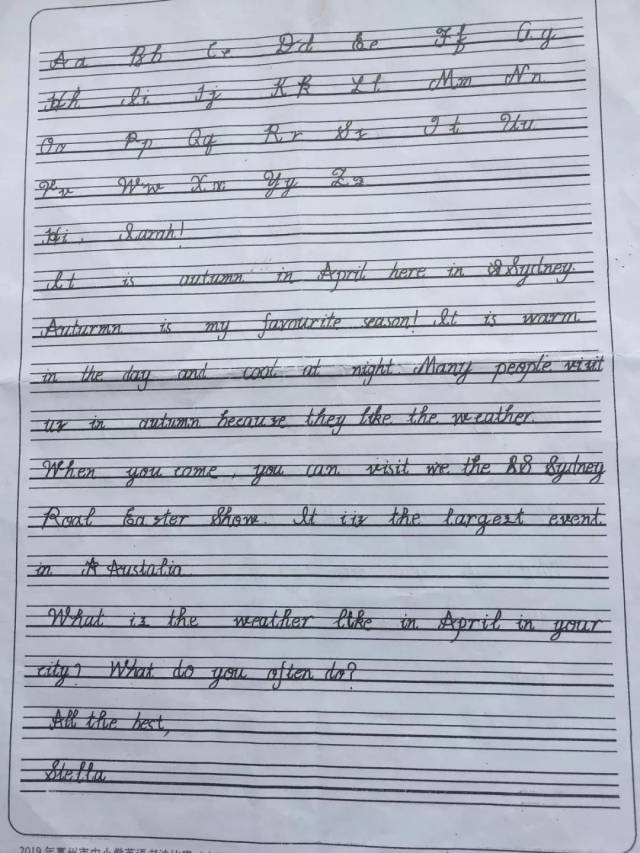 Aa Bb Cc Dd Ee Ff Gg
Hh Ii Jj Kk Ll Mm Nn
Oo Pp Qq Rr Ss Tt Uu
Vv Ww Xx Yy Zz
Hi, Sarah!
It is autumn in April here in Sydney.
Auturmn is my favourite season! It is warm
in the day and cool at night. Many people visit
us in autumn because they like the weather.
When you come, you can visit the Sydney
Roal Easter Show. It iis the largest event
in Austalin
What is the weather like in April in your
city? What do you often do?
All the best,
Stella
2019年惠州市中小学英语书法比赛